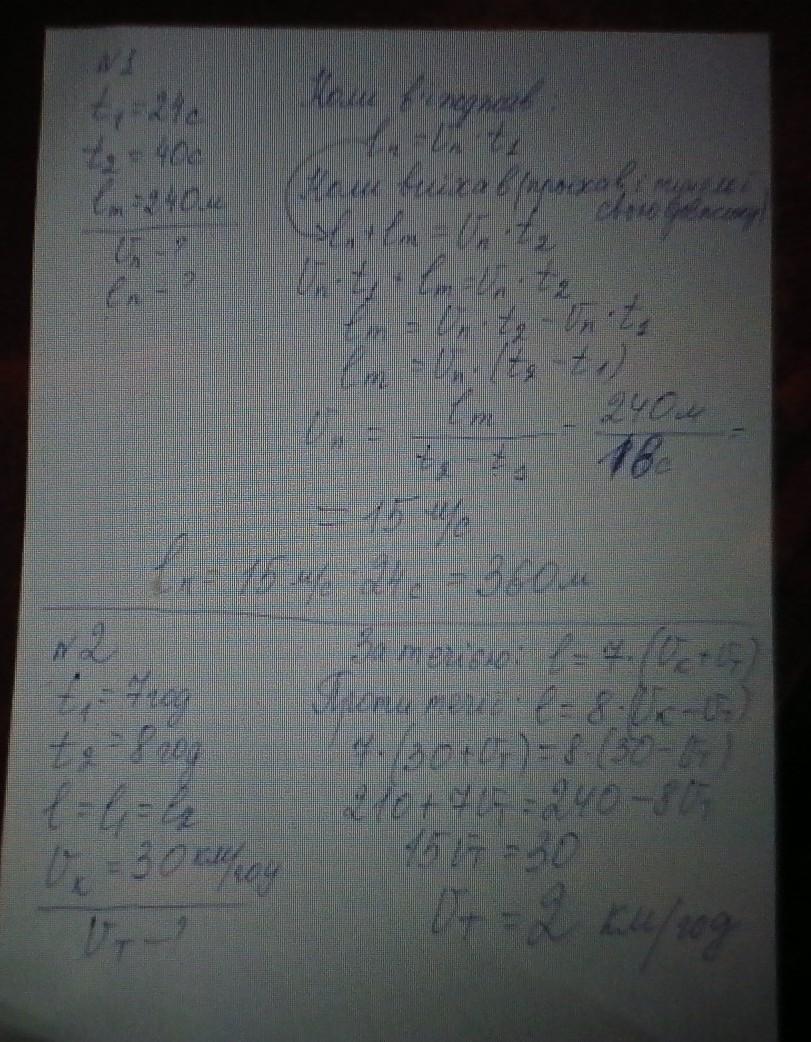 №1
t₁ = 24с
t₂ = 40с
lₘ = 240м
Vₙ - ?
lₙ - ?
Коли :
lₙ = Vₙ · t₁
Коли виїхав (проїхав і
свою довжину)
lₙ + lₘ = Vₙ · t₂
Vₙ · t₁ + lₘ = Vₙ · t₂
lₘ = Vₙ · t₂ - Vₙ · t₁
lₘ = Vₙ · (t₂ - t₁)
Vₙ = lₘ / (t₂ - t₁) = 240м / 16с =
= 15 м/с
lₙ = 15 м/с · 24с = 360м
№2
t₁ = 7год
t₂ = 8год
l = l₁ = l₂
Vₖ = 30 км/год
Vт - ?
За течією: l = 7 · (Vₖ + Vт)
Проти течії: l = 8 · (Vₖ - Vт)
7 · (30 + Vт) = 8 · (30 - Vт)
210 + 7Vт = 240 - 8Vт
15Vт = 30
Vт = 2 км/год